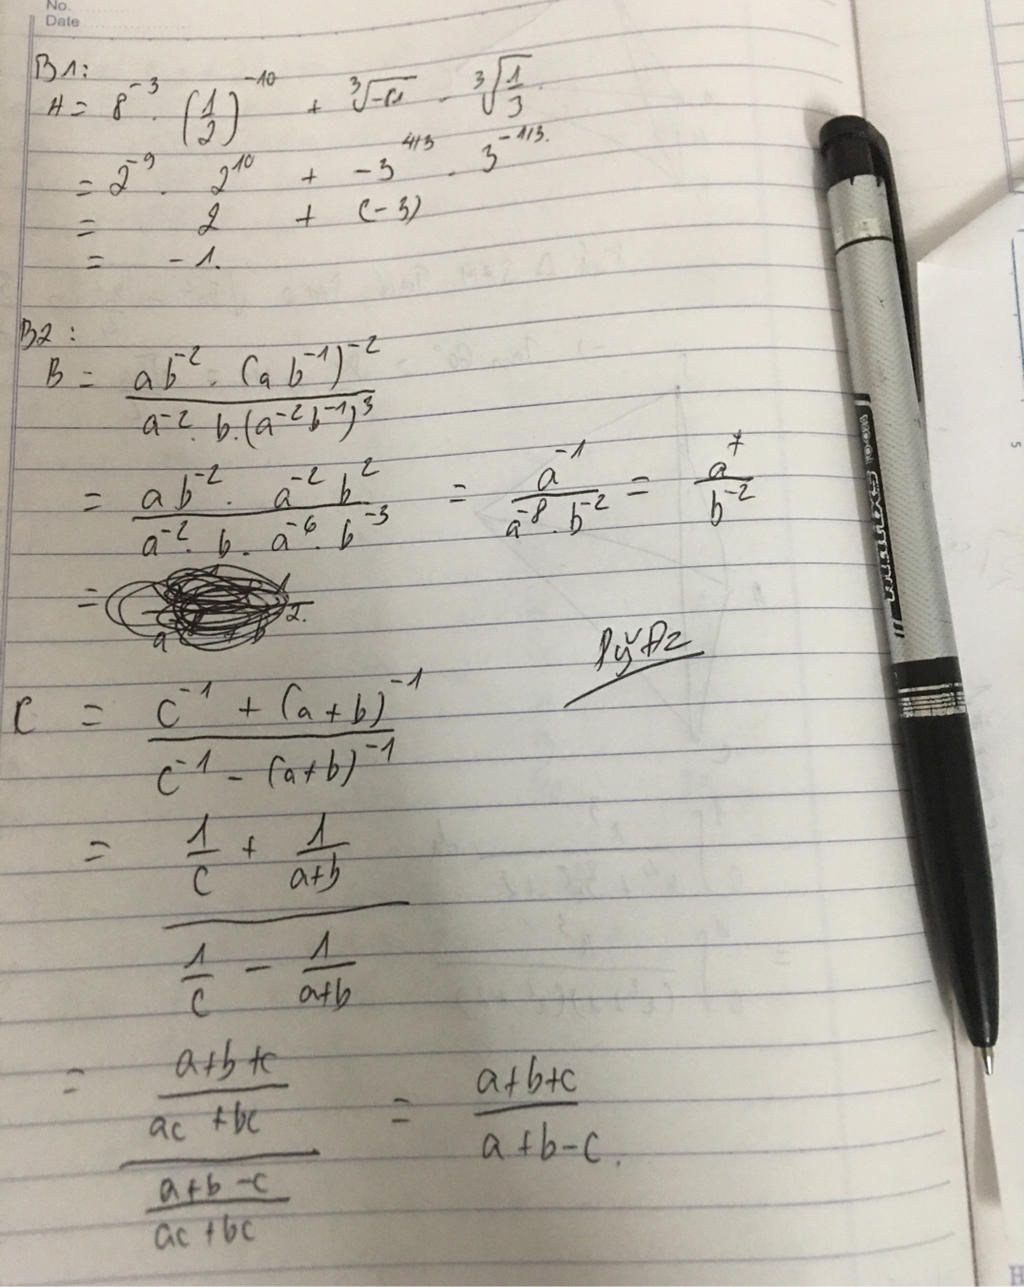 No.
Date
B1:
A = 8^-3 . (1/2)^-10 + ∛-81 . ∛(1/3).
= 2^-9 . 2^10 + -3^4/3 . 3^-1/3.
= 2 + (-3)
= -1.
B2:
B = ab^-2 . (ab^-1)^-2 / a^-2 . b.(a^-2 b^-1)^3
= ab^-2 . a^-2 b^2 / a^-2 . b . a^-6 . b^-3 = a^-1 / a^-8 . b^-2 = a^7 / b^-2
=
C = c^-1 + (a+b)^-1 / c^-1 - (a+b)^-1
= 1/c + 1/a+b / 1/c - 1/a+b
= a+b+c / ac+bc / a+b-c / ac+bc = a+b+c / a+b-c.